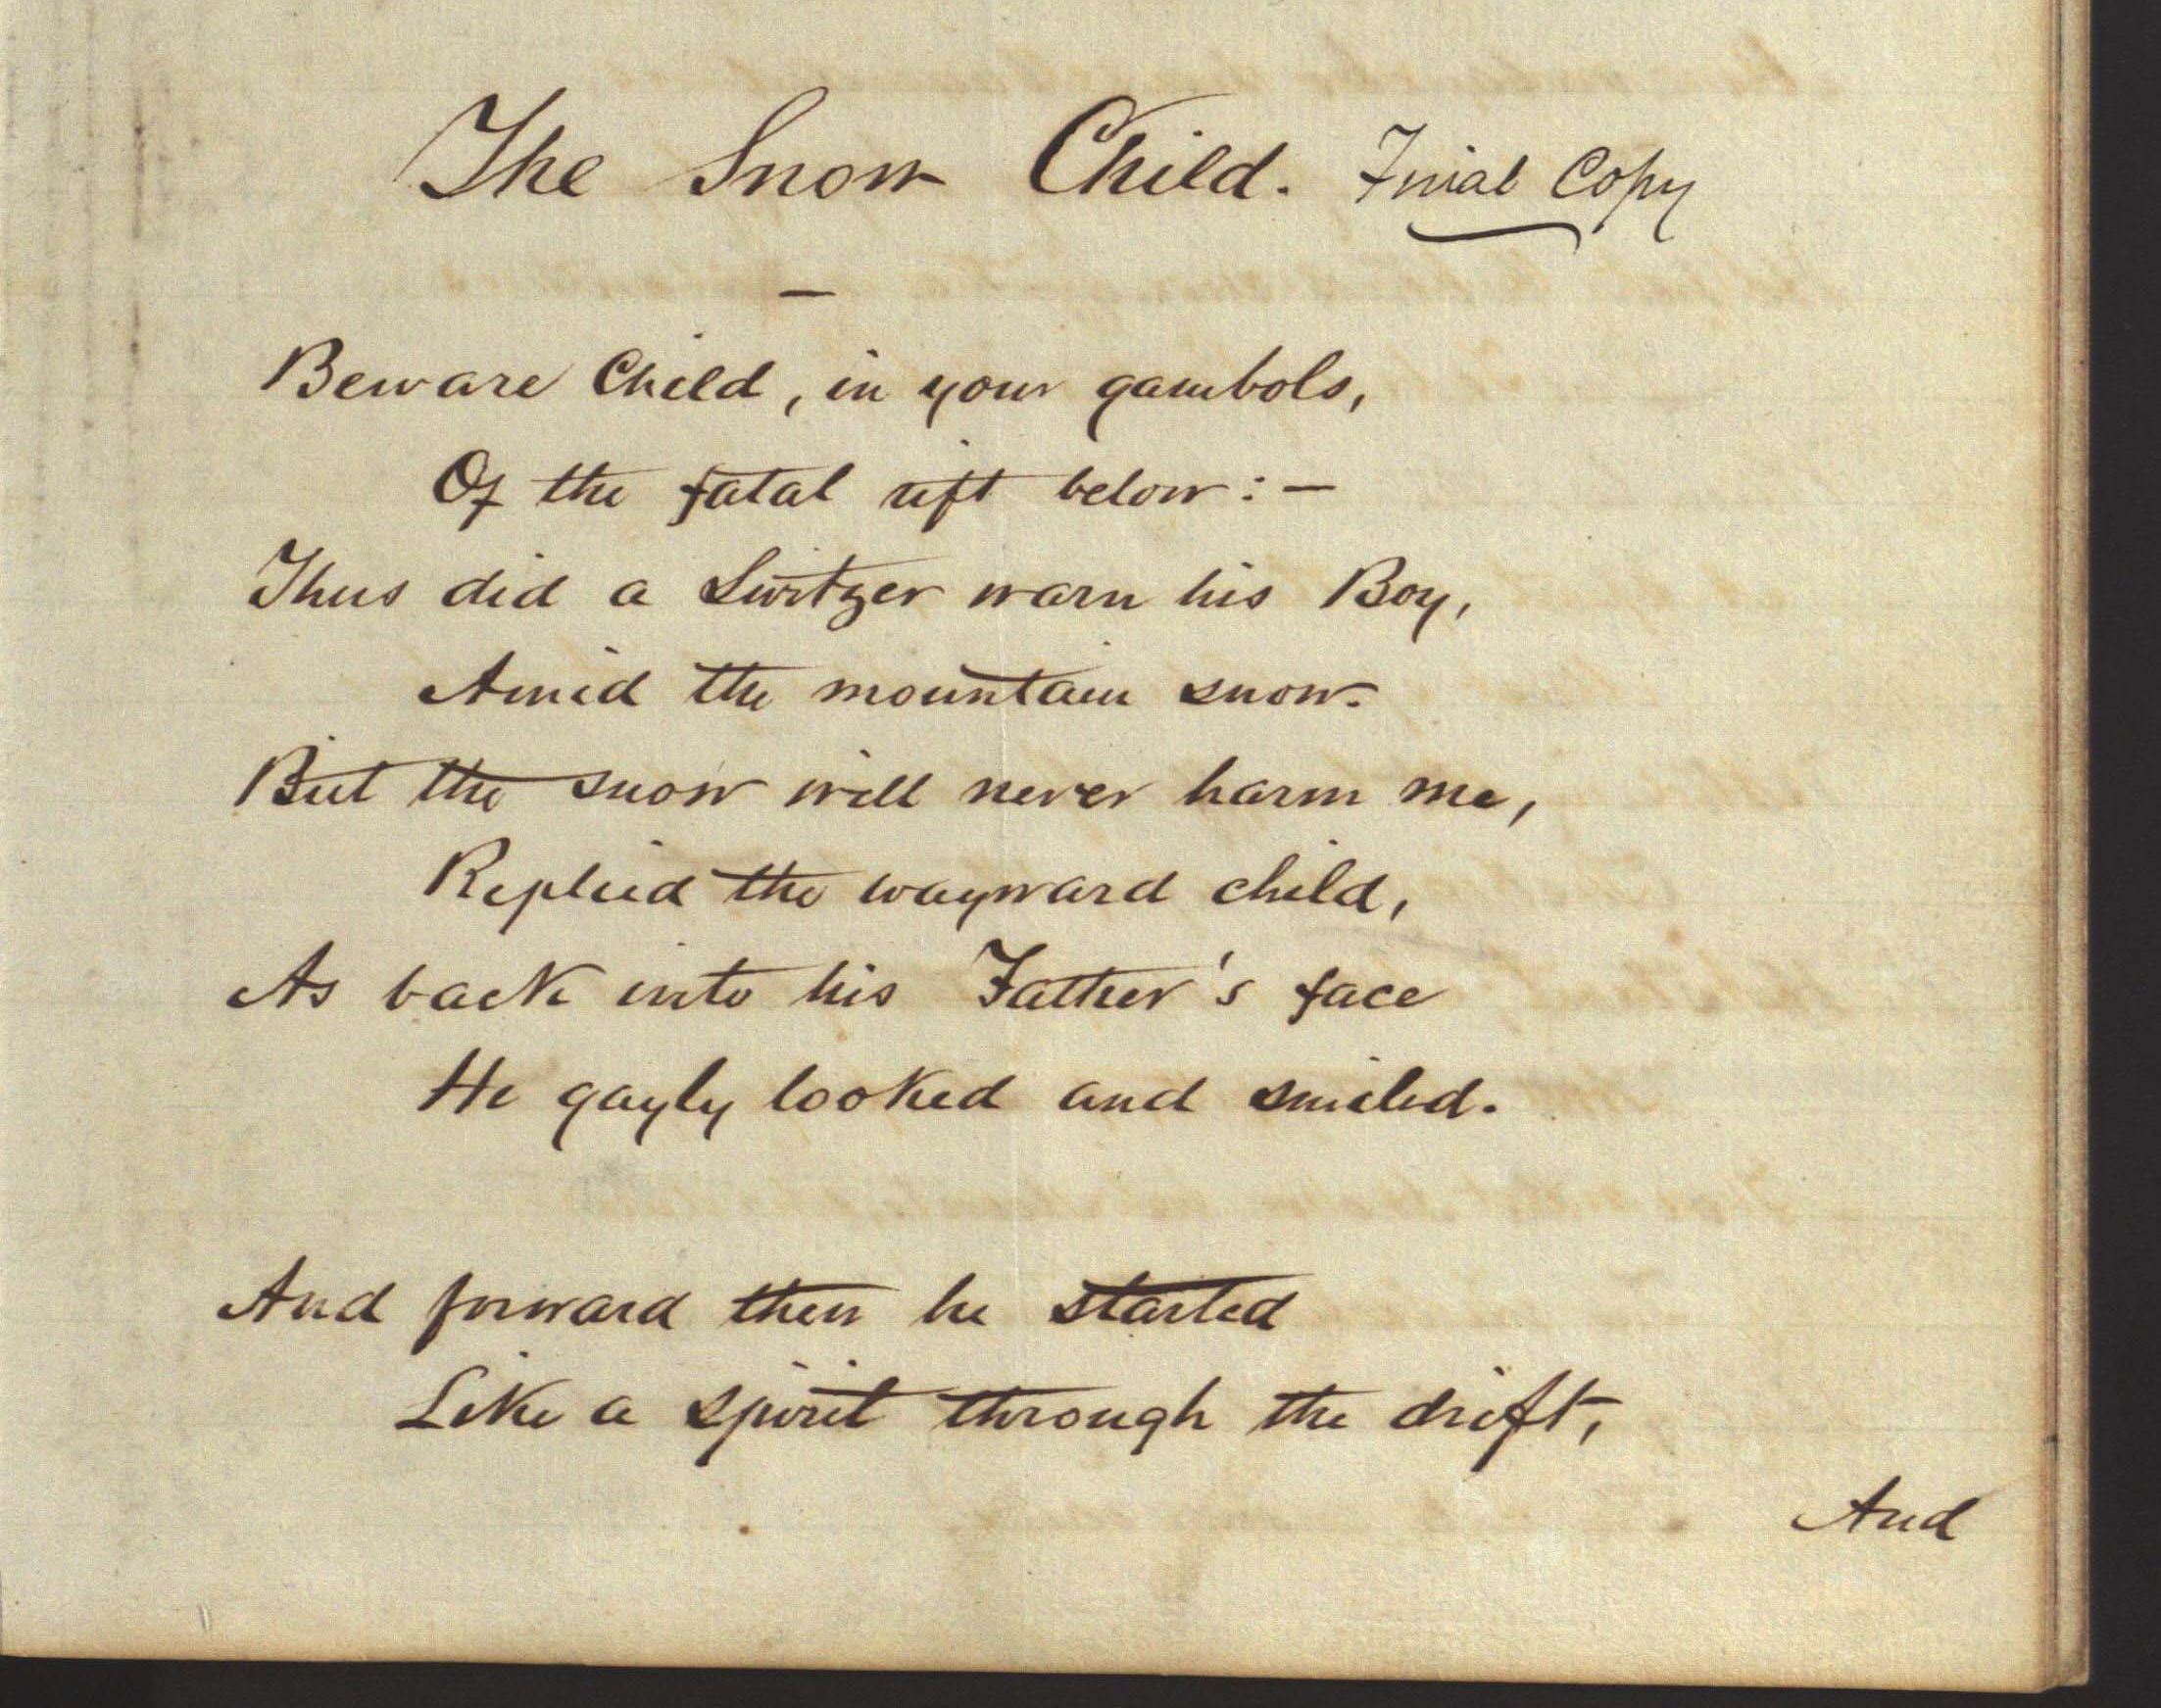 The Snow Child. Final Copy
—
Beware Child, in your gambols,
Of the fatal rift below: —
Thus did a Switzer warn his Boy,
Amid the mountain snow.
But the snow will never harm me,
Replied the wayward child,
As back into his Father's face
He gayly looked and smiled.
And forward then he started
Like a spirit through the drift,
And